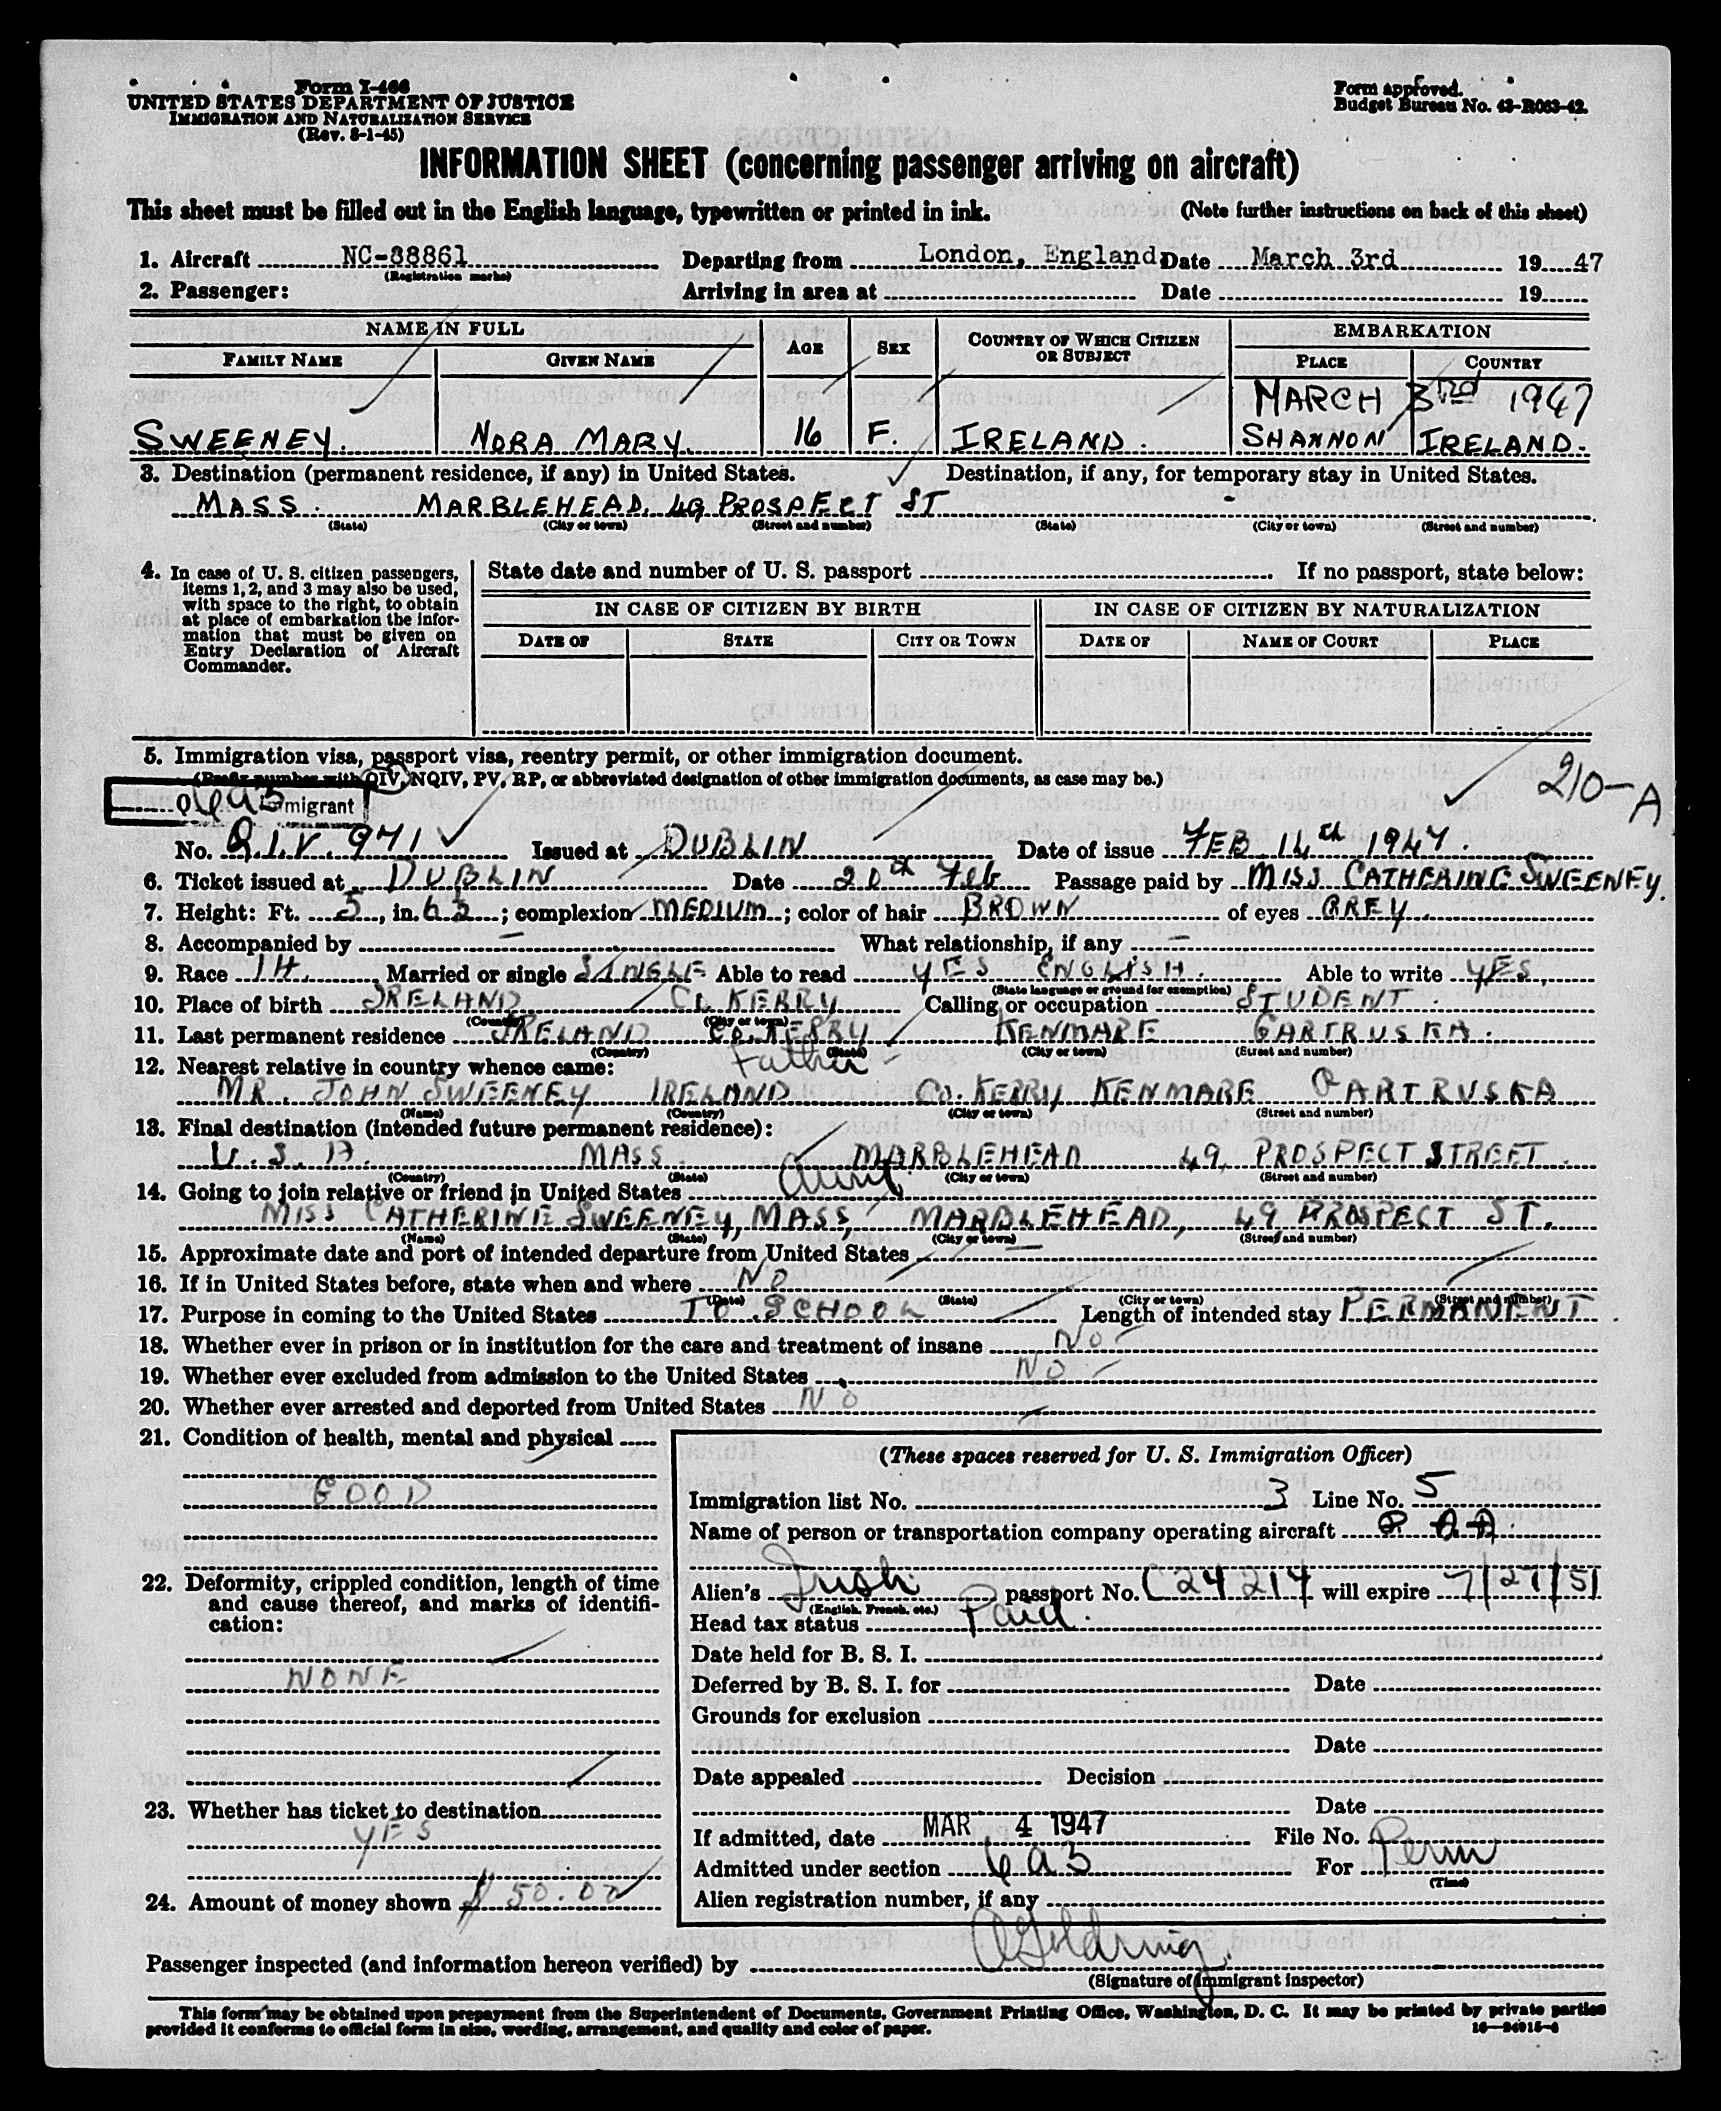 Form I-466
UNITED STATES DEPARTMENT OF JUSTICE
IMMIGRATION AND NATURALIZATION SERVICE
(Rev. 8-1-45)
Form approved.
Budget Bureau No. 43-R063-42.
INFORMATION SHEET (concerning passenger arriving on aircraft)
This sheet must be filled out in the English language, typewritten or printed in ink. (Note further instructions on back of this sheet)
1. Aircraft NC-88861 Departing from London, England Date March 3rd 1947
(Registration marks)
2. Passenger: Arriving in area at Date 19
NAME IN FULL AGE SEX COUNTRY OF WHICH CITIZEN OR SUBJECT EMBARKATION
FAMILY NAME GIVEN NAME PLACE COUNTRY
MARCH 3rd 1947
SWEENEY. NORA MARY. 16 F. IRELAND. SHANNON IRELAND.
3. Destination (permanent residence, if any) in United States. Destination, if any, for temporary stay in United States.
MASS. MARBLEHEAD, 49 PROSPECT ST -
(State) (City or town) (Street and number) (State) (City or town) (Street and number)
4. In case of U. S. citizen passengers, items 1, 2, and 3 may also be used, with space to the right, to obtain at place of embarkation the information that must be given on Entry Declaration of Aircraft Commander.
State date and number of U. S. passport If no passport, state below:
IN CASE OF CITIZEN BY BIRTH IN CASE OF CITIZEN BY NATURALIZATION
DATE OF STATE CITY OR TOWN DATE OF NAME OF COURT PLACE
5. Immigration visa, passport visa, reentry permit, or other immigration document.
(Prefix number with QIV, NQIV, PV, RP, or abbreviated designation of other immigration documents, as case may be.)
210-A
Q 6a3 Immigrant
No. Q.I.V. 971 Issued at DUBLIN Date of issue FEB 14th 1947.
6. Ticket issued at DUBLIN Date 20th Feb Passage paid by MISS CATHERINE SWEENEY.
7. Height: Ft. 5, in. 6½; complexion MEDIUM; color of hair BROWN of eyes GREY.
8. Accompanied by - What relationship, if any -
9. Race IH. Married or single SINGLE Able to read YES ENGLISH. Able to write YES.
(State language or ground for exemption)
10. Place of birth IRELAND Co. KERRY Calling or occupation STUDENT.
(Country) (City or town)
11. Last permanent residence IRELAND Co. KERRY KENMARE GARTRUSKA.
(Country) (State) (City or town) (Street and number)
12. Nearest relative in country whence came: Father
MR. JOHN SWEENEY IRELAND Co. KERRY, KENMARE GARTRUSKA
(Name) (Country) (City or town) (Street and number)
13. Final destination (intended future permanent residence):
U.S.A. MASS. MARBLEHEAD 49, PROSPECT STREET.
(Country) (State) (City or town) (Street and number)
14. Going to join relative or friend in United States Aunt
MISS CATHERINE SWEENEY, MASS, MARBLEHEAD, 49 PROSPECT ST.
(Name) (State) (City or town) (Street and number)
15. Approximate date and port of intended departure from United States -
16. If in United States before, state when and where NO
(Date) (State) (City or town) (Street and number)
17. Purpose in coming to the United States TO SCHOOL Length of intended stay PERMANENT.
18. Whether ever in prison or in institution for the care and treatment of insane NO
19. Whether ever excluded from admission to the United States NO
20. Whether ever arrested and deported from United States NO
21. Condition of health, mental and physical
GOOD
22. Deformity, crippled condition, length of time and cause thereof, and marks of identification:
NONE
23. Whether has ticket to destination
YES
24. Amount of money shown $50.00
(These spaces reserved for U. S. Immigration Officer)
Immigration list No. 3 Line No. 5
Name of person or transportation company operating aircraft P A A.
Alien's Irish passport No. C 24214 will expire 7/27/51
(English, French, etc.)
Head tax status Paid.
Date held for B. S. I.
Deferred by B. S. I. for Date
Grounds for exclusion
Date
Date appealed Decision
Date
If admitted, date MAR 4 1947 File No.
Admitted under section 6a3 For Perm
(Time)
Alien registration number, if any
Passenger inspected (and information hereon verified) by
(Signature of immigrant inspector)
This form may be obtained upon prepayment from the Superintendent of Documents, Government Printing Office, Washington, D. C. It may be printed by private parties
provided it conforms to official form in size, wording, arrangement, and quality and color of paper.